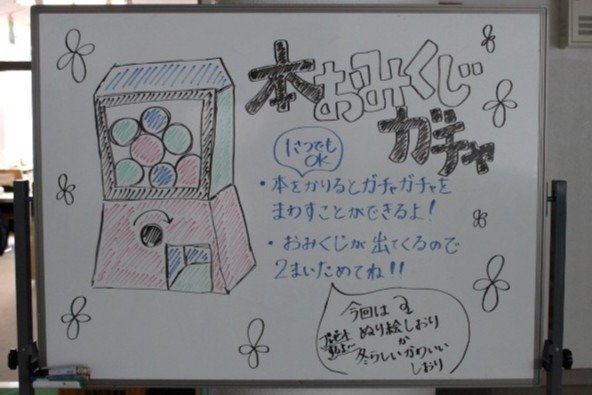 本おみくじ
ガチャ
1さつでも
OK
・本をかりるとガチャガチャを
まわすことができるよ！
・おみくじが出てくるので
2まいためてね！！
今回は
ぬり絵しおり
か
冬らしいかわいい
しおり